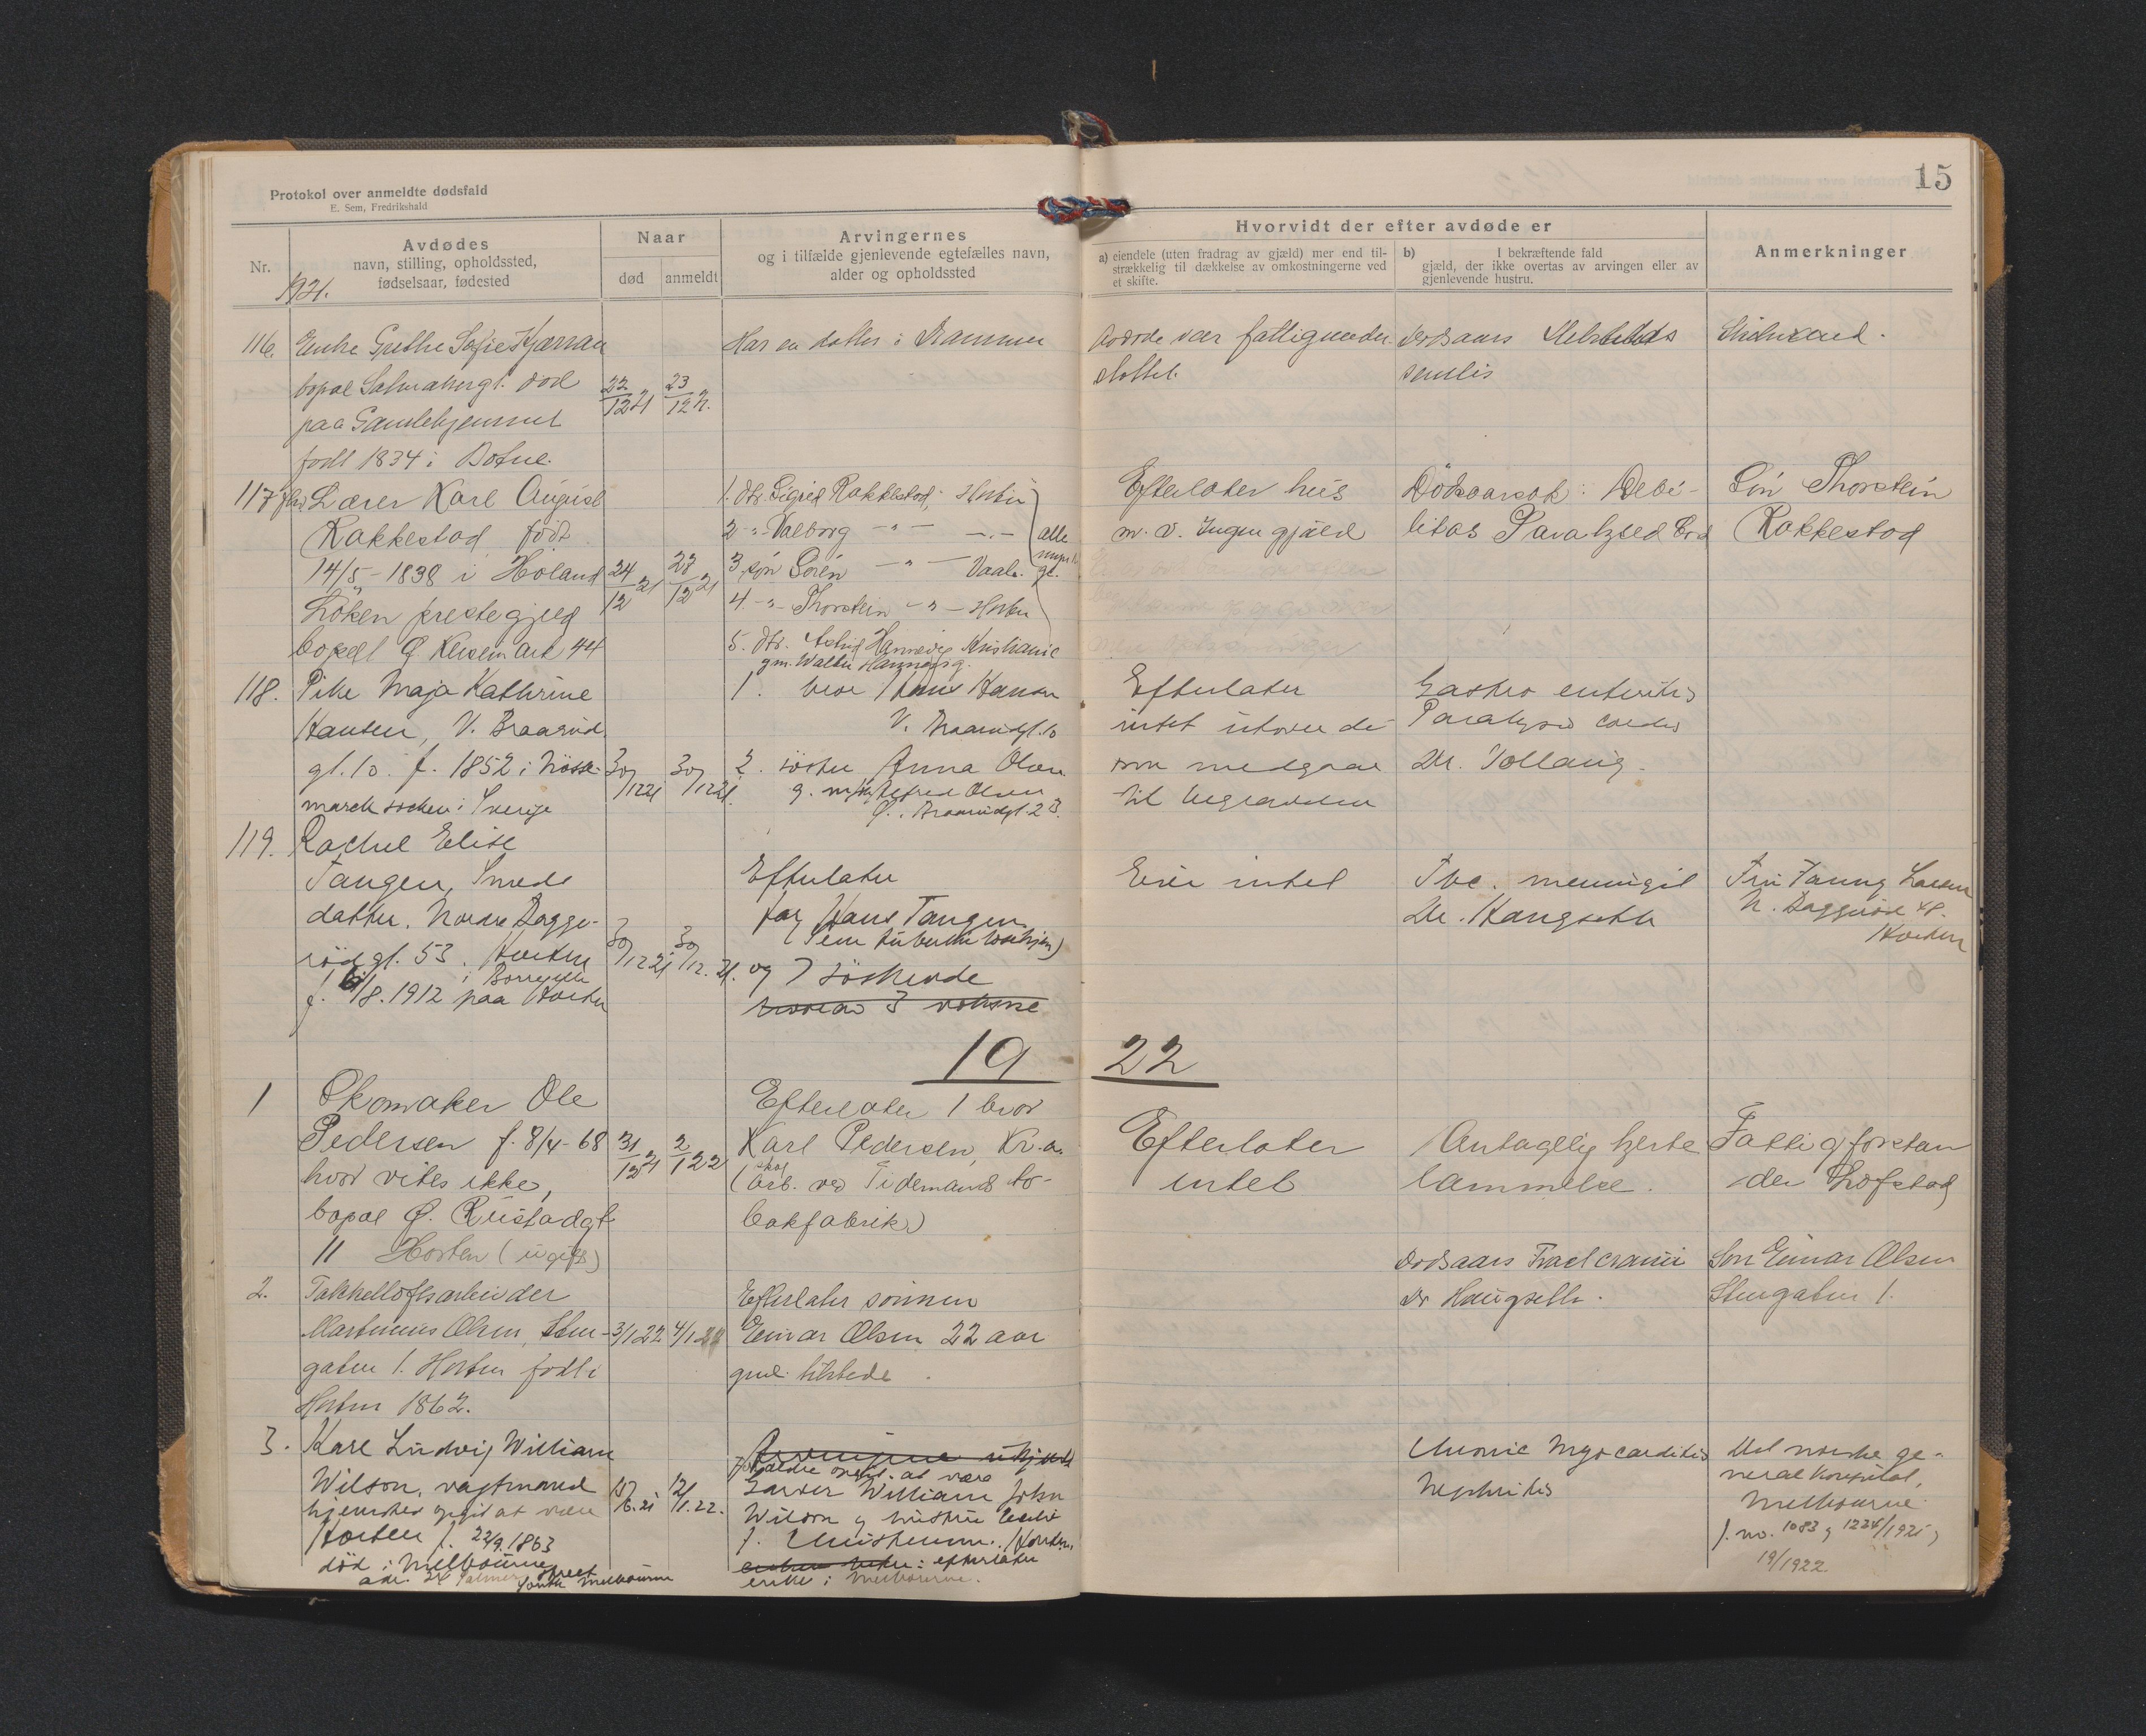 15
Protokol over anmeldte dødsfald
E. Sem, Fredrikshald
Nr.
1921.
Avdødes
navn, stilling, opholdssted,
fødselsaar, fødested
Naar
død
anmeldt
Arvingernes
og i tilfælde gjenlevende egtefælles navn,
alder og opholdssted
Hvorvidt der efter avdøde er
a) eiendele (uten fradrag av gjæld) mer end til-
strækkelig til dækkelse av omkostningerne ved
et skifte.
b) I bekræftende fald
gjæld, der ikke overtas av arvingen eller av
gjenlevende hustru.
Anmerkninger
116. Enke Grethe Sofie
bopæl død
paa Gamlehjemmet
født 1834 i Botne.
22/12 21
23/12 21.
Har en datter i Drammen
Avdøde var fattigunder-
støttet
Dødsaars
senilis
117 Lærer Karl August
Rakkestad født
14/5-1838 i Høland
Løken prestegjeld
bopæl Ø Keisemark 44
24/12 21
28/12 21
1. dtr. Sigrid Rakkestad, Horten
2 -"- Valborg -"- -"-
3 søn Sören -"- Vaale.
4. -"- Thorstein -"- Horten
5. dtr. Astrid Hannevig Kristiania
gm. Walter Hannevig.
alle
Efterlater hus
m. v. Ingen gjæld
Dödsaarsak: Debi-
litas Paralysed Cord
Sön Thorstein
Rakkestad
118. Pike Maja Kathrine
Hansen, V. Braarud
gt. 10. f. 1852 i Nösse-
mark socken i Sverige
30/12 21
30/12 21.
1. bror Hans Hansen
V. Braarudgt. 10
2. söster Anna Olsen
g. m. Alfred Olsen
Ø. Braarudgt. 23.
Efterlater
intet utover de
som medgaar
til begravelsen
Gastro enteritis
Paralysis cordis
Dr. Tollaug.
119. Rachel Elise
Tangen, Smeds
datter. Nordre Bagge-
rödgt. 53. Horten
f. /8. 1912 paa Horten
30/12 21
30/12. 21.
Efterlater
far Hans Tangen
og 7 söskende
hvorav 3 voksne
Eier intet
Tbc. meningit
Dr. Haugseth
Fru Fanny Larsen
N. Baggeröd 48.
Horten
19 22
1 Skomaker Ole
Pedersen f. 8/4-68
hvor vites ikke,
bopæl Ø. Rustadgt
11 Horten (ugift)
31/12 21
2/1 22
Efterlater 1 bror
Karl Pedersen, Kr.a.
(skal
arb. ved Tidemands to-
bakfabrik)
Efterlater
intet
Antagelig hjerte
lammelse.
Fattigforstan
der Lofstad
2. Takkelloftsarbeider
Martinius Olsen, Sten-
gaten 1. Horten født i
Horten 1862.
3/1 22
4/1 22
Efterlater sønnen
Einar Olsen 22 aar
gml. tilstede.
Dødsaars Fract cranii
Dr Haugseth.
Søn Einar Olsen
Stengaten 1.
3. Karl Ludvig William
Wilson, vagtmand
hjemsted opgit at være
Horten f. 22/9. 1863
død i Melbourne
adr. 24 Palmer Street
South Melbourne
15/6. 21
12/1. 22.
Forældre opgit. at være
Garver William John
Wilson og hustru
f. Christensen. Horten.
efterlater
enke i Melbourne.
Chronic Myocarditis
Nephritis
Det norske ge-
neral konsulat,
Melbourne.
J. no. 1083 og 1224/1921 og
19/1922.